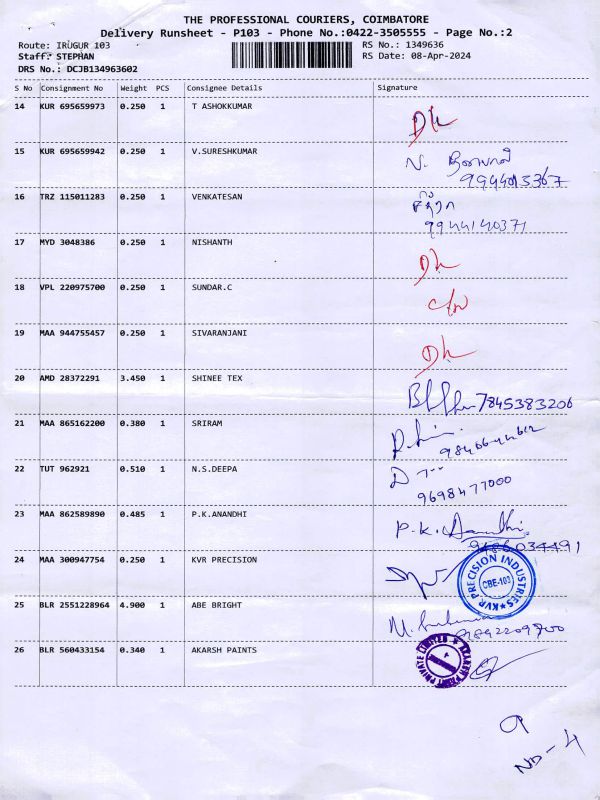 THE PROFESSIONAL COURIERS, COIMBATORE
Delivery Runsheet - P103 - Phone No.:0422-3505555 - Page No.:2
Route: IRUGUR 103 RS No.: 1349636
Staff: STEPHAN RS Date: 08-Apr-2024
DRS No.: DCJB134963602
S No Consignment No Weight PCS Consignee Details Signature
14 KUR 695659973 0.250 1 T ASHOKKUMAR
15 KUR 695659942 0.250 1 V.SURESHKUMAR
16 TRZ 115011283 0.250 1 VENKATESAN
9944140371
17 MYD 3048386 0.250 1 NISHANTH
18 VPL 220975700 0.250 1 SUNDAR.C
19 MAA 944755457 0.250 1 SIVARANJANI
20 AMD 28372291 3.450 1 SHINEE TEX 7845383206
21 MAA 865162200 0.380 1 SRIRAM
22 TUT 962921 0.510 1 N.S.DEEPA
9698477000
23 MAA 862589890 0.485 1 P.K.ANANDHI P.K. Anandhi
24 MAA 300947754 0.250 1 KVR PRECISION KVR PRECISION INDUSTRIES CBE-103
25 BLR 2551228964 4.900 1 ABE BRIGHT
26 BLR 560433154 0.340 1 AKARSH PAINTS
9
ND-4